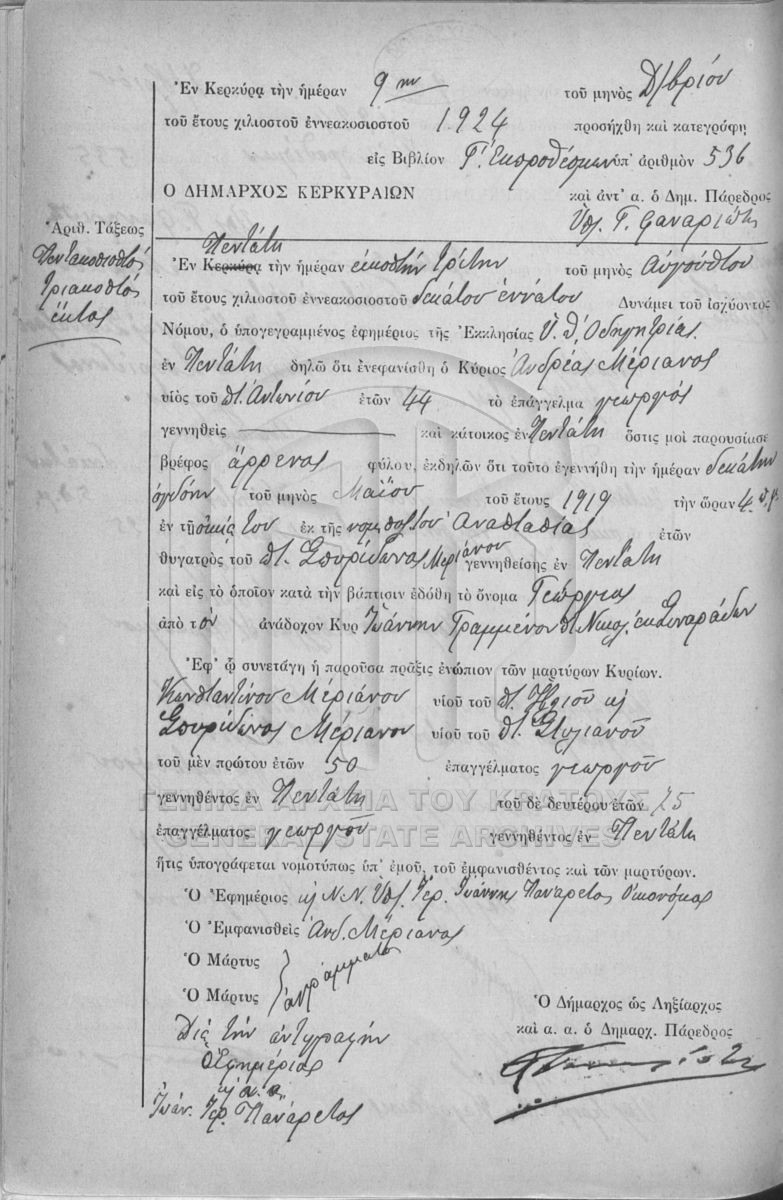 Ἐν Κερκύρᾳ τὴν ἡμέραν 9ην τοῦ μηνὸς Δ/βρίου
τοῦ ἔτους χιλιοστοῦ ἐννεακοσιοστοῦ 1924 προσήχθη καὶ κατεγράφη
εἰς Βιβλίον Γ' Ἐκπροθέσμων ὑπ' ἀριθμὸν 536
Ο ΔΗΜΑΡΧΟΣ ΚΕΡΚΥΡΑΙΩΝ καὶ ἀντ' α. ὁ Δημ. Πάρεδρος
Ὑπ. Γ. Φαναριώτης
Ἀριθ. Τάξεως
Πεντακοσιοστός
τριακοστός
ἕκτος
Πεντάτῃ
Ἐν Κερκύρᾳ τὴν ἡμέραν εἰκοστήν τρίτην τοῦ μηνὸς Αὐγούστου
τοῦ ἔτους χιλιοστοῦ ἐννεακοσιοστοῦ δεκάτου ἐννάτου Δυνάμει τοῦ ἰσχύοντος
Νόμου, ὁ ὑπογεγραμμένος ἐφημέριος τῆς Ἐκκλησίας Ὑ. Θ. Ὁδηγητρίας
ἐν Πεντάτῃ δηλῶ ὅτι ἐνεφανίσθη ὁ Κύριος Ἀνδρέας Μέριανος
υἱὸς τοῦ π. Ἀντωνίου ἐτῶν 44 τὸ ἐπάγγελμα γεωργός
γεννηθεὶς καὶ κάτοικος ἐν Πεντάτῃ ὅστις μοὶ παρουσίασε
βρέφος ἄρρενος φύλου, ἐκδηλῶν ὅτι τοῦτο ἐγεννήθη τὴν ἡμέραν δεκάτην
ὀγδόην τοῦ μηνὸς Μαΐου τοῦ ἔτους 1919 τὴν ὥραν 4 π.μ.
ἐν τῇ οἰκίᾳ του ἐκ τῆς νομ. συζ. του Ἀναστασίας ἐτῶν
θυγατρὸς τοῦ π. Σπυρίδωνος Μεριάνου γεννηθείσης ἐν Πεντάτῃ
καὶ εἰς τὸ ὁποῖον κατὰ τὴν βάπτισιν ἐδόθη τὸ ὄνομα Γεώργιος
ἀπὸ τὸν ἀνάδοχον Κυρ Ἰωάννην Γραμμένον π. Νικολ. ἐκ Σιναράδων
Ἐφ' ᾧ συνετάγη ἡ παροῦσα πρᾶξις ἐνώπιον τῶν μαρτύρων Κυρίων.
Κωνσταντίνου Μεριάνου υἱοῦ τοῦ π. Ἠλιοῦ κ
Σπυρίδωνος Μεριάνου υἱοῦ τοῦ π. Στυλιανοῦ
τοῦ μὲν πρώτου ἐτῶν 50 ἐπαγγέλματος γεωργοῦ
γεννηθέντος ἐν Πεντάτῃ τοῦ δὲ δευτέρου ἐτῶν 75
ΓΕΝΙΚΑ ΑΡΧΕΙΑ ΤΟΥ ΚΡΑΤΟΥΣ
ἐπαγγέλματος γεωργοῦ γεννηθέντος ἐν Πεντάτῃ
GENERAL STATE ARCHIVES
ἥτις ὑπογράφεται νομοτύπως ὑπ' ἐμοῦ, τοῦ ἐμφανισθέντος καὶ τῶν μαρτύρων.
Ὁ Ἐφημέριος Ν.Ν. Ὑπ. Ἱερ. Ἰωάννης Πανάρετος Οἰκονόμος
Ὁ Ἐμφανισθεὶς Ἀνδ. Μέριανος
Ὁ Μάρτυς
ἀγράμματοι
Ὁ Μάρτυς
Ὁ Δήμαρχος ὡς Ληξίαρχος
καὶ α. α. ὁ Δημαρχ. Πάρεδρος
Διὰ τὴν ἀντιγραφὴν
Ὁ Ἐφημέριος
Ἰωάν. Ἱερ. Πανάρετος